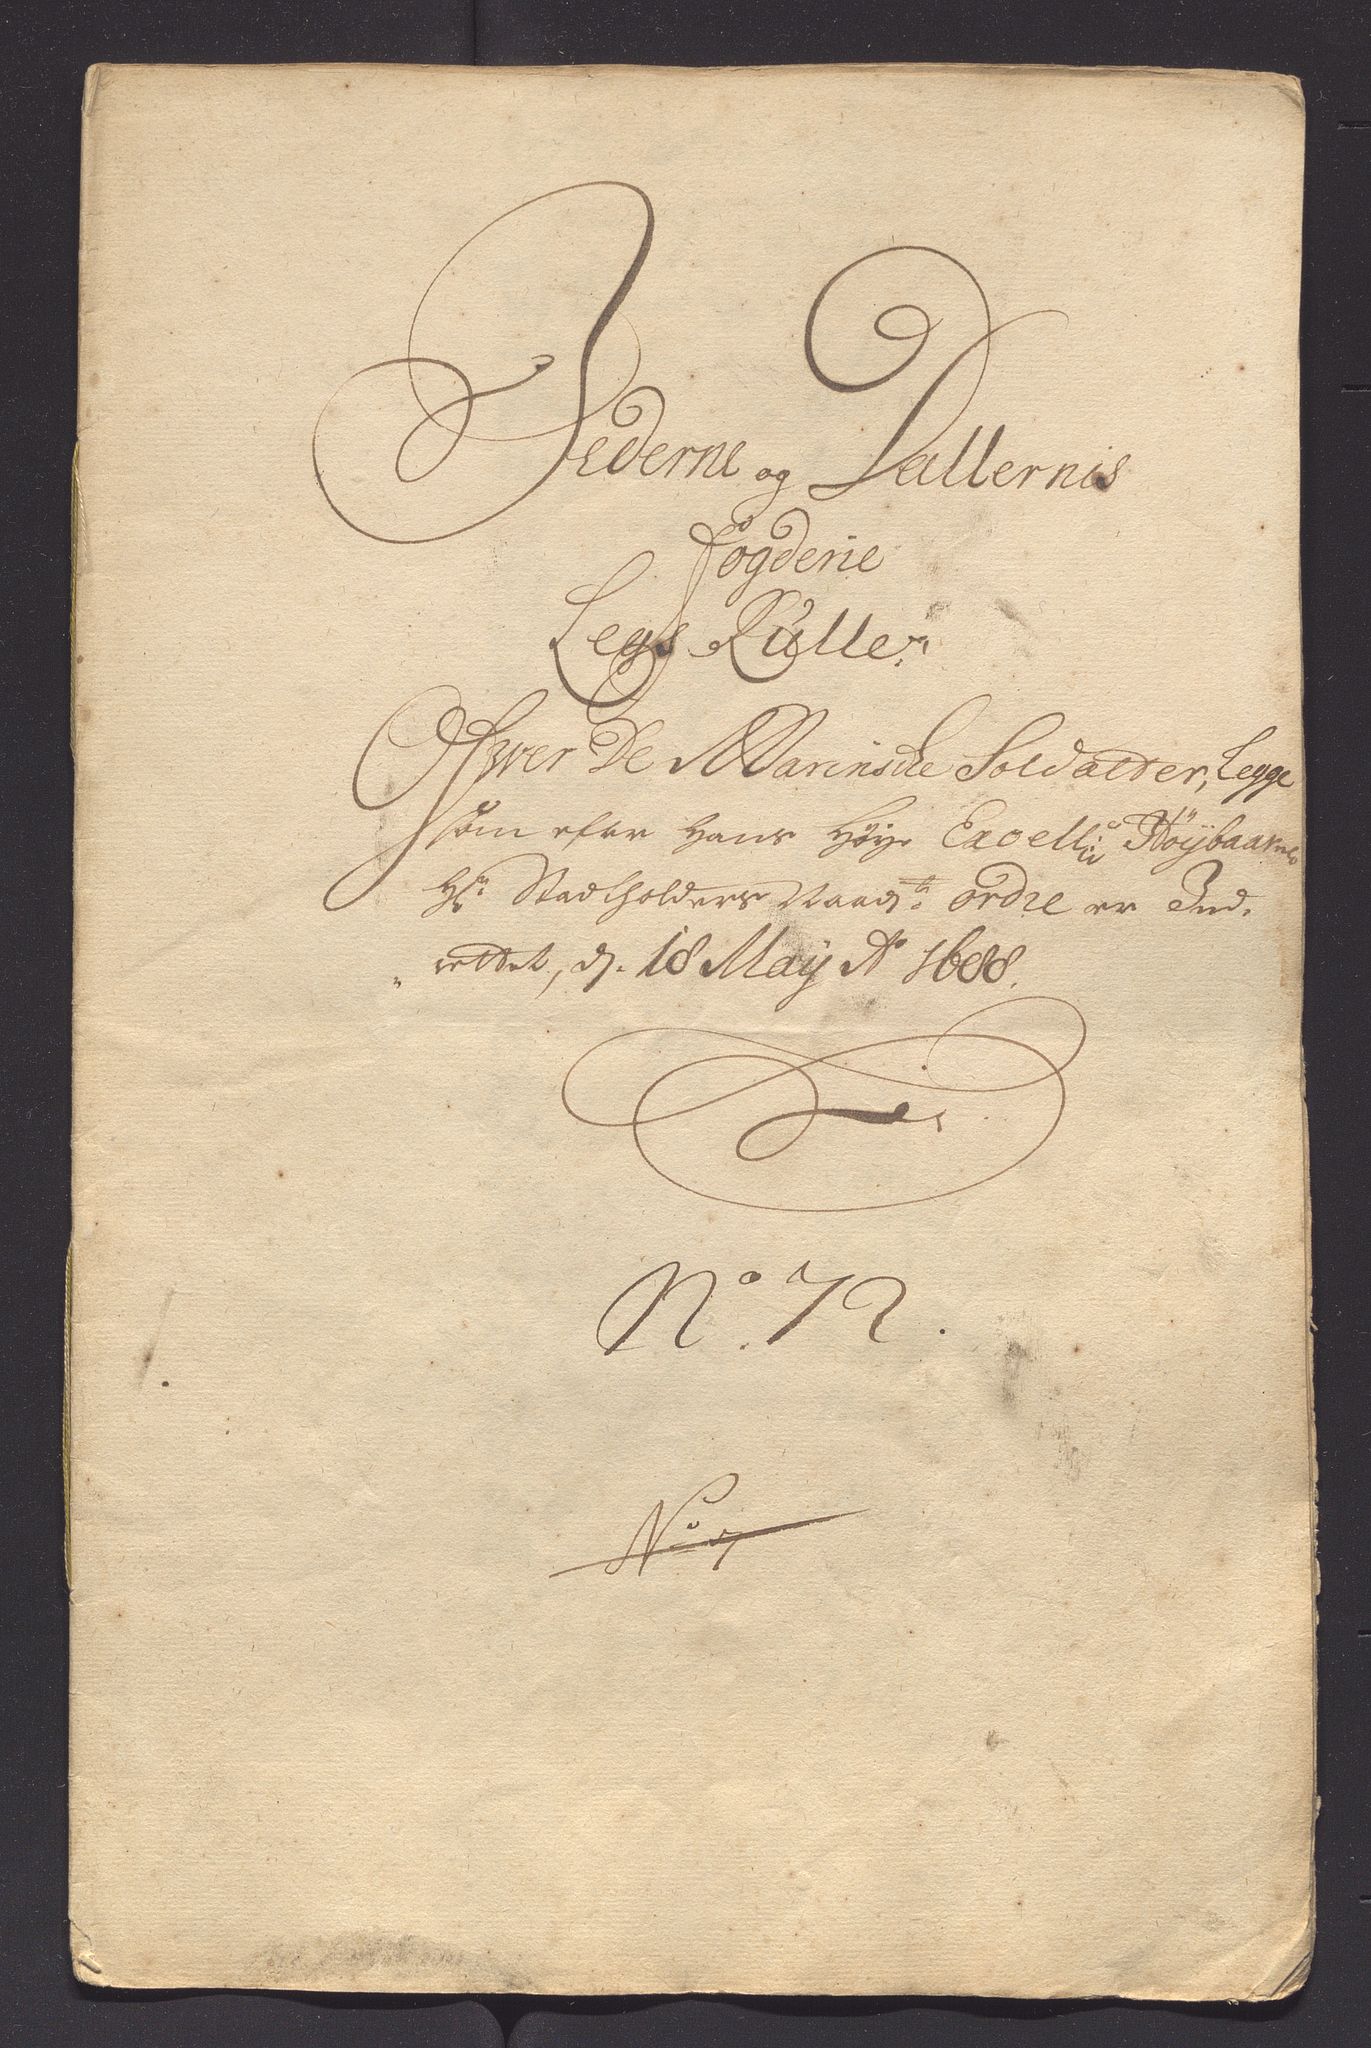 Jederne og Dallernis
fogderie
Legs Rulle
Ofwer De Marinsche Soldatter, Legge
som efter Hans Høye Excell: Höybaarne
Hr: Stadtholders Naadis: ordre er Ind-
rettet, d. 18 Maij Ao 1688.
No. 72.
No